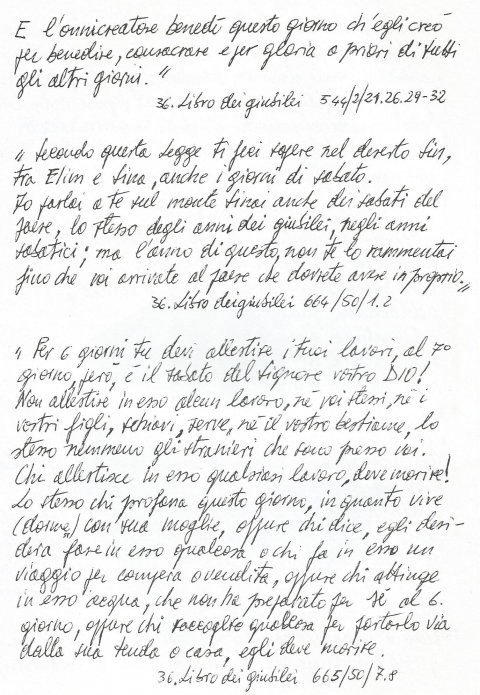 E l'onnicreatore benedì questo giorno ch'egli creò
per benedire, consacrare e per gloria a priori di tutti
gli altri giorni."
36. Libro dei giubilei 544/2/21.26.29-32
"Secondo questa legge ti feci sapere nel deserto Sin,
tra Elim e Sina, anche i giorni di sabato.
Io parlai a te sul monte Sinai anche dei sabati del
paese, lo stesso degli anni dei giubilei, negli anni
sabatici; ma l'anno di questo, non te lo rammentai
fino che voi arrivate al paese che dovrete avere in proprio."
36. Libro dei giubilei 664/50/1.2
"Per 6 giorni tu devi allestire i tuoi lavori, al 7º
giorno, però, è il sabato del Signore vostro DIO!
Non allestire in esso alcun lavoro, nè voi stessi, nè i
vostri figli, schiavi, serve, nè il vostro bestiame, lo
stesso nemmeno gli stranieri che sono presso voi.
Chi allestisce in esso qualsiasi lavoro, deve morire!
Lo stesso chi profana questo giorno, in quanto vive
(dorme) con sua moglie, oppure chi dice, egli desi-
dera fare in esso qualcosa o chi fa in esso un
viaggio per compera o vendita, oppure chi attinge
in esso acqua, che non ha preparato per sé al 6.
giorno, oppure chi raccoglie qualcosa per portarlo via
dalla sua tenda o casa, egli deve morire.
36. Libro dei giubilei 665/50/7.8